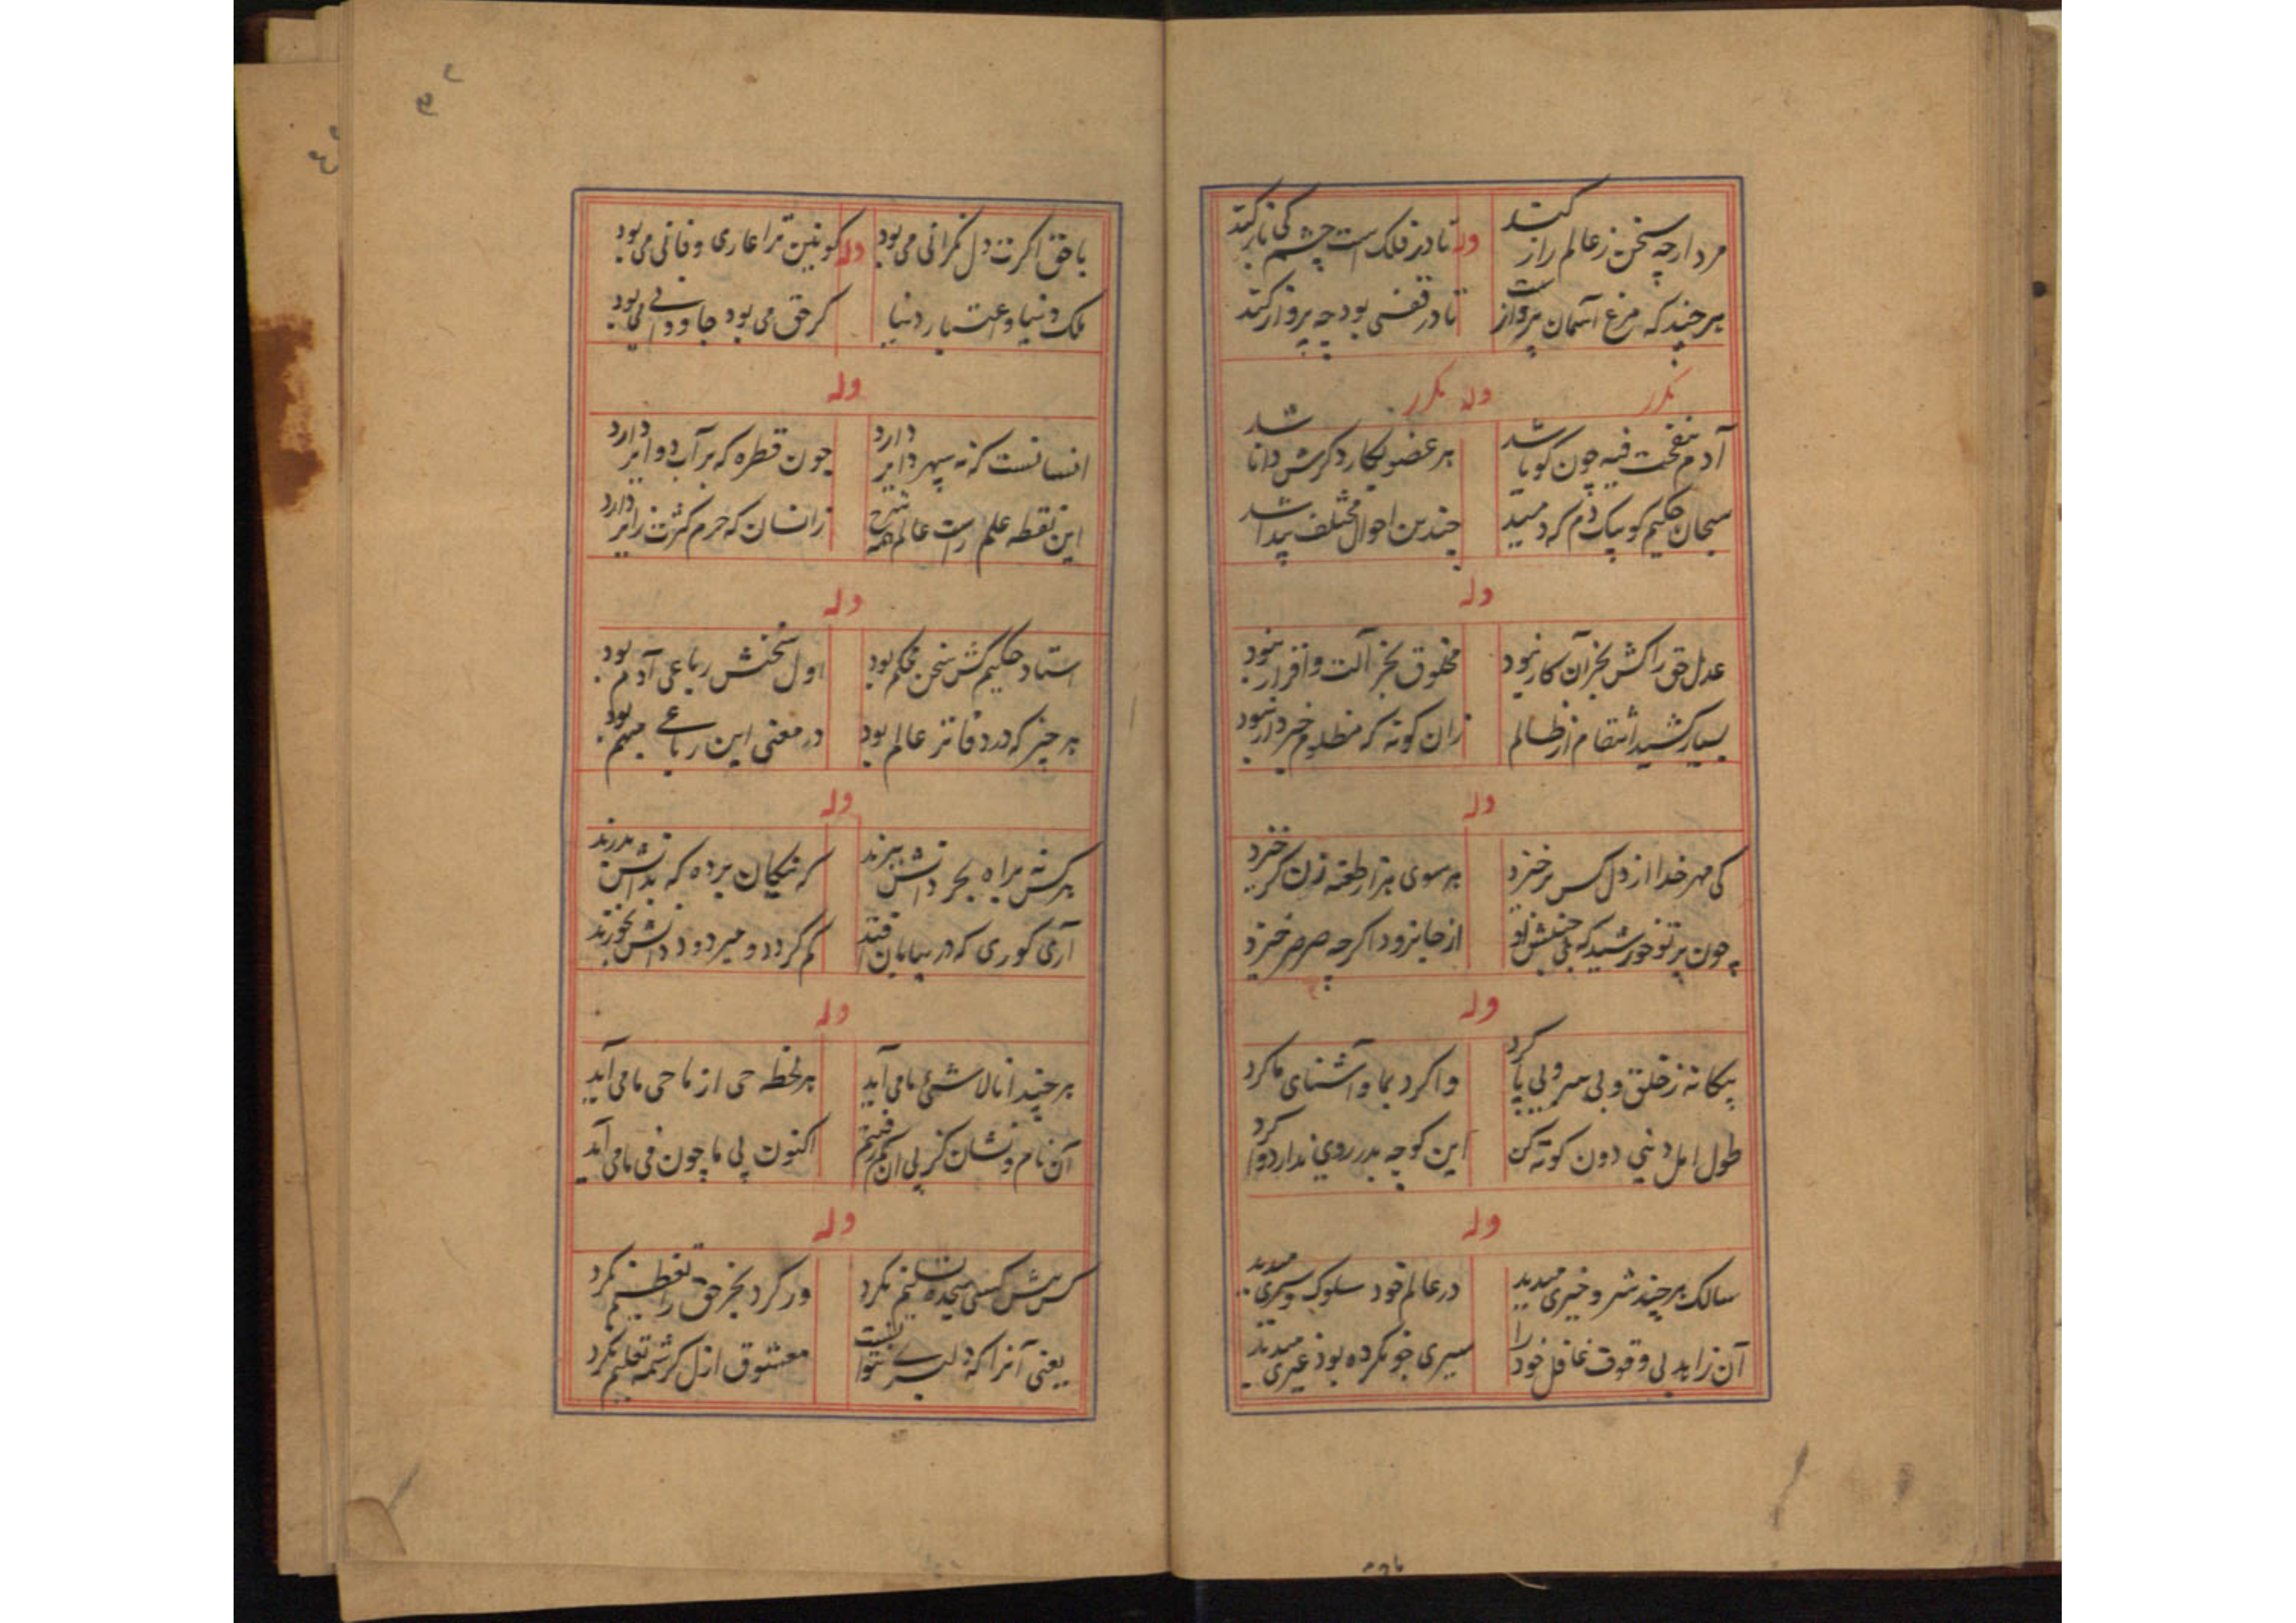 مرد ارچه سخن ز عالم راز کند وله تا در فلک است چشم کی باز کند
هر چند که مرغ آسمان پروازست تا در قفس بود چه پرواز کند
مکرر وله مکرر
آدم بنفخت فیه چون کویا شد هر عضو بکار دکرش دانا شد
سبحان حکیم کو بیک دم که دمید چندین احوال مختلف پیدا شد
وله
عدل حق را کش بجز آن کار نبود مخلوق بجز آلت و افزار نبود
بسیار کشید انتقام از ظالم زان کونه که مظلوم خبردار نبود
وله
کی مهر خدا از دل کس برخیزد هر سوی هزار طعنه زن کر خیزد
چون پرتو خورشید که بی جنبش او از جا نرود اکرچه صرصر خیزد
وله
بیکانه ز خلق و بی سر و بی پا کرد وا کرد بما و آشنای ما کرد
طول امل دنیی دون کوته کن این کوچه بدر روی ندارد وا کرد
وله
سالک هر چند شر و خیری میدید در عالم خود سلوک و سیری میدید
آن زاهد بی وقوف غافل خود را سیری خو نکرده بود غیری میدید
با حق اکرت دل نکرانی می بود وله کونین ترا عاری و فانی می بود
ملک دنیا و اعتبار دنیا کر حق می بود جاودانی می بود
وله
انسانست که نه سپهر دایر دارد چون قطره که بر آب دوایر دارد
این نقطه علم راست عالم همه شرح زانسان که حرم کثرت زایر دارد
وله
استاد حکیم کش سخن محکم بود اول سخنش رباعی آدم بود
هر چیز که در دفاتر عالم بود در معنی این رباعی مبهم بود
وله
هر کس نه براه بحر دانش ببرند که نیکان برده که بدانش بدرند
آری کوری که در بیابان افتد کم کردد و میرد و ددانش بخورند
وله
هر چند انا لاشئ ما می آید هر لحظه حی از ما حی ما می آید
آن نام و نشان کز پی آن کم رفتیم اکنون پی ما چون فی ما می آید
وله
کس پیش کسی سجده تسلیم نکرد ور کرد بجز حق را تعظیم نکرد
یعنی آنرا که دلبری نتوانست معشوق ازل کرشمه تعلیم نکرد